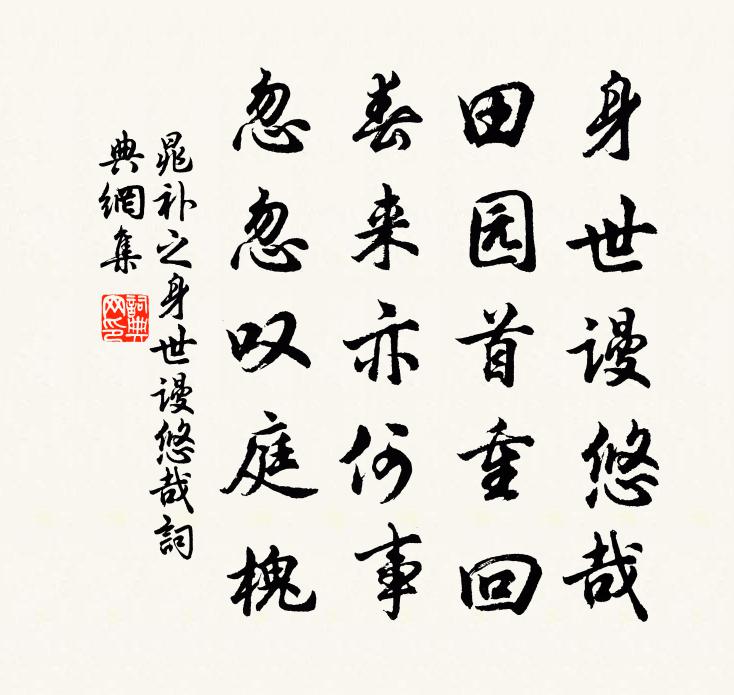 身世谩悠哉
田园首重回
春来亦何事
忽忽叹庭槐
晁补之身世谩悠哉詞
典網集
詞典
网印